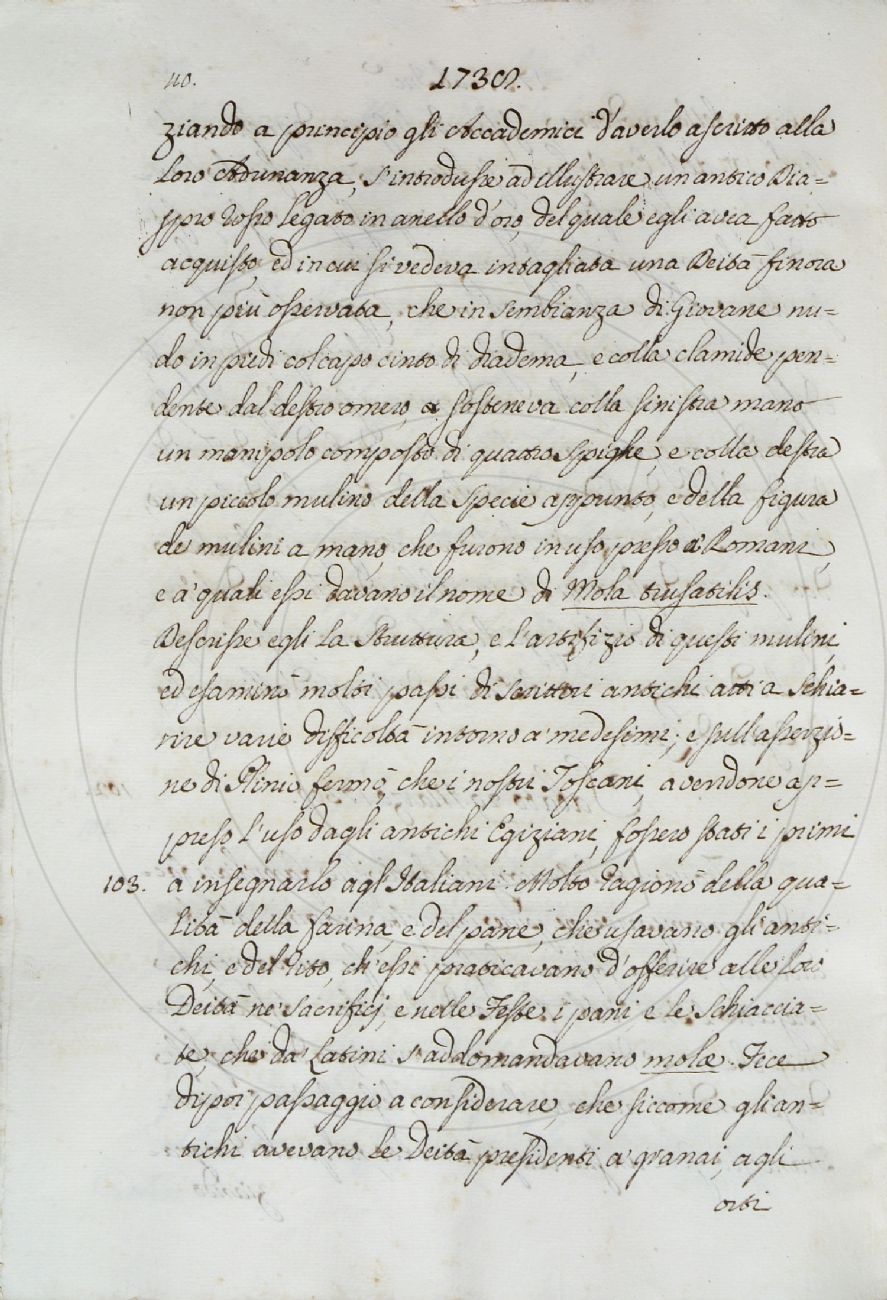 110.
1738.
ziando a principio gli Accademici d'averlo ascritto alla
loro Adunanza, s'introdusse ad illustrare un antico Dia=
spro rosso legato in anello d'oro, del quale egli avea fatto
acquisto, ed in cui si vedeva intagliata una Deità finora
non più osservata, che in sembianza di Giovane nu=
do in piedi col capo cinto di diadema, e colla clamide pen=
dente dal destro omero, sosteneva colla sinistra mano
un manipolo composto di quattro spighe, e colla destra
un piccolo mulino della specie appunto, e della figura
de mulini a mano, che furono in uso presso i Romani,
e a' quali essi davano il nome di Mola trusatilis.
Descrisse egli la struttura, e l'artifizio di questi mulini,
ed esaminò molti passi di scrittori antichi atti a schia=
rire varie difficoltà intorno a' medesimi; e sull'asserzio=
ne di Plinio fermò, che i nostri Toscani, avendone ap=
preso l'uso dagli antichi Egiziani, fossero stati i primi
103. a insegnarlo agl'Italiani. Molto ragionò della qua=
lità della farina, e del pane, che usavano gli anti=
chi, e del rito, ch'essi praticavano d'offerire alle loro
Deità ne' sacrifici, e nelle Feste i pani e le schiaccia=
te, che da' Latini s'addomandavano molæ. Fece
dipoi passaggio a considerare, che siccome gli an=
tichi avevano le Deità presidenti a' granai, agli
orti